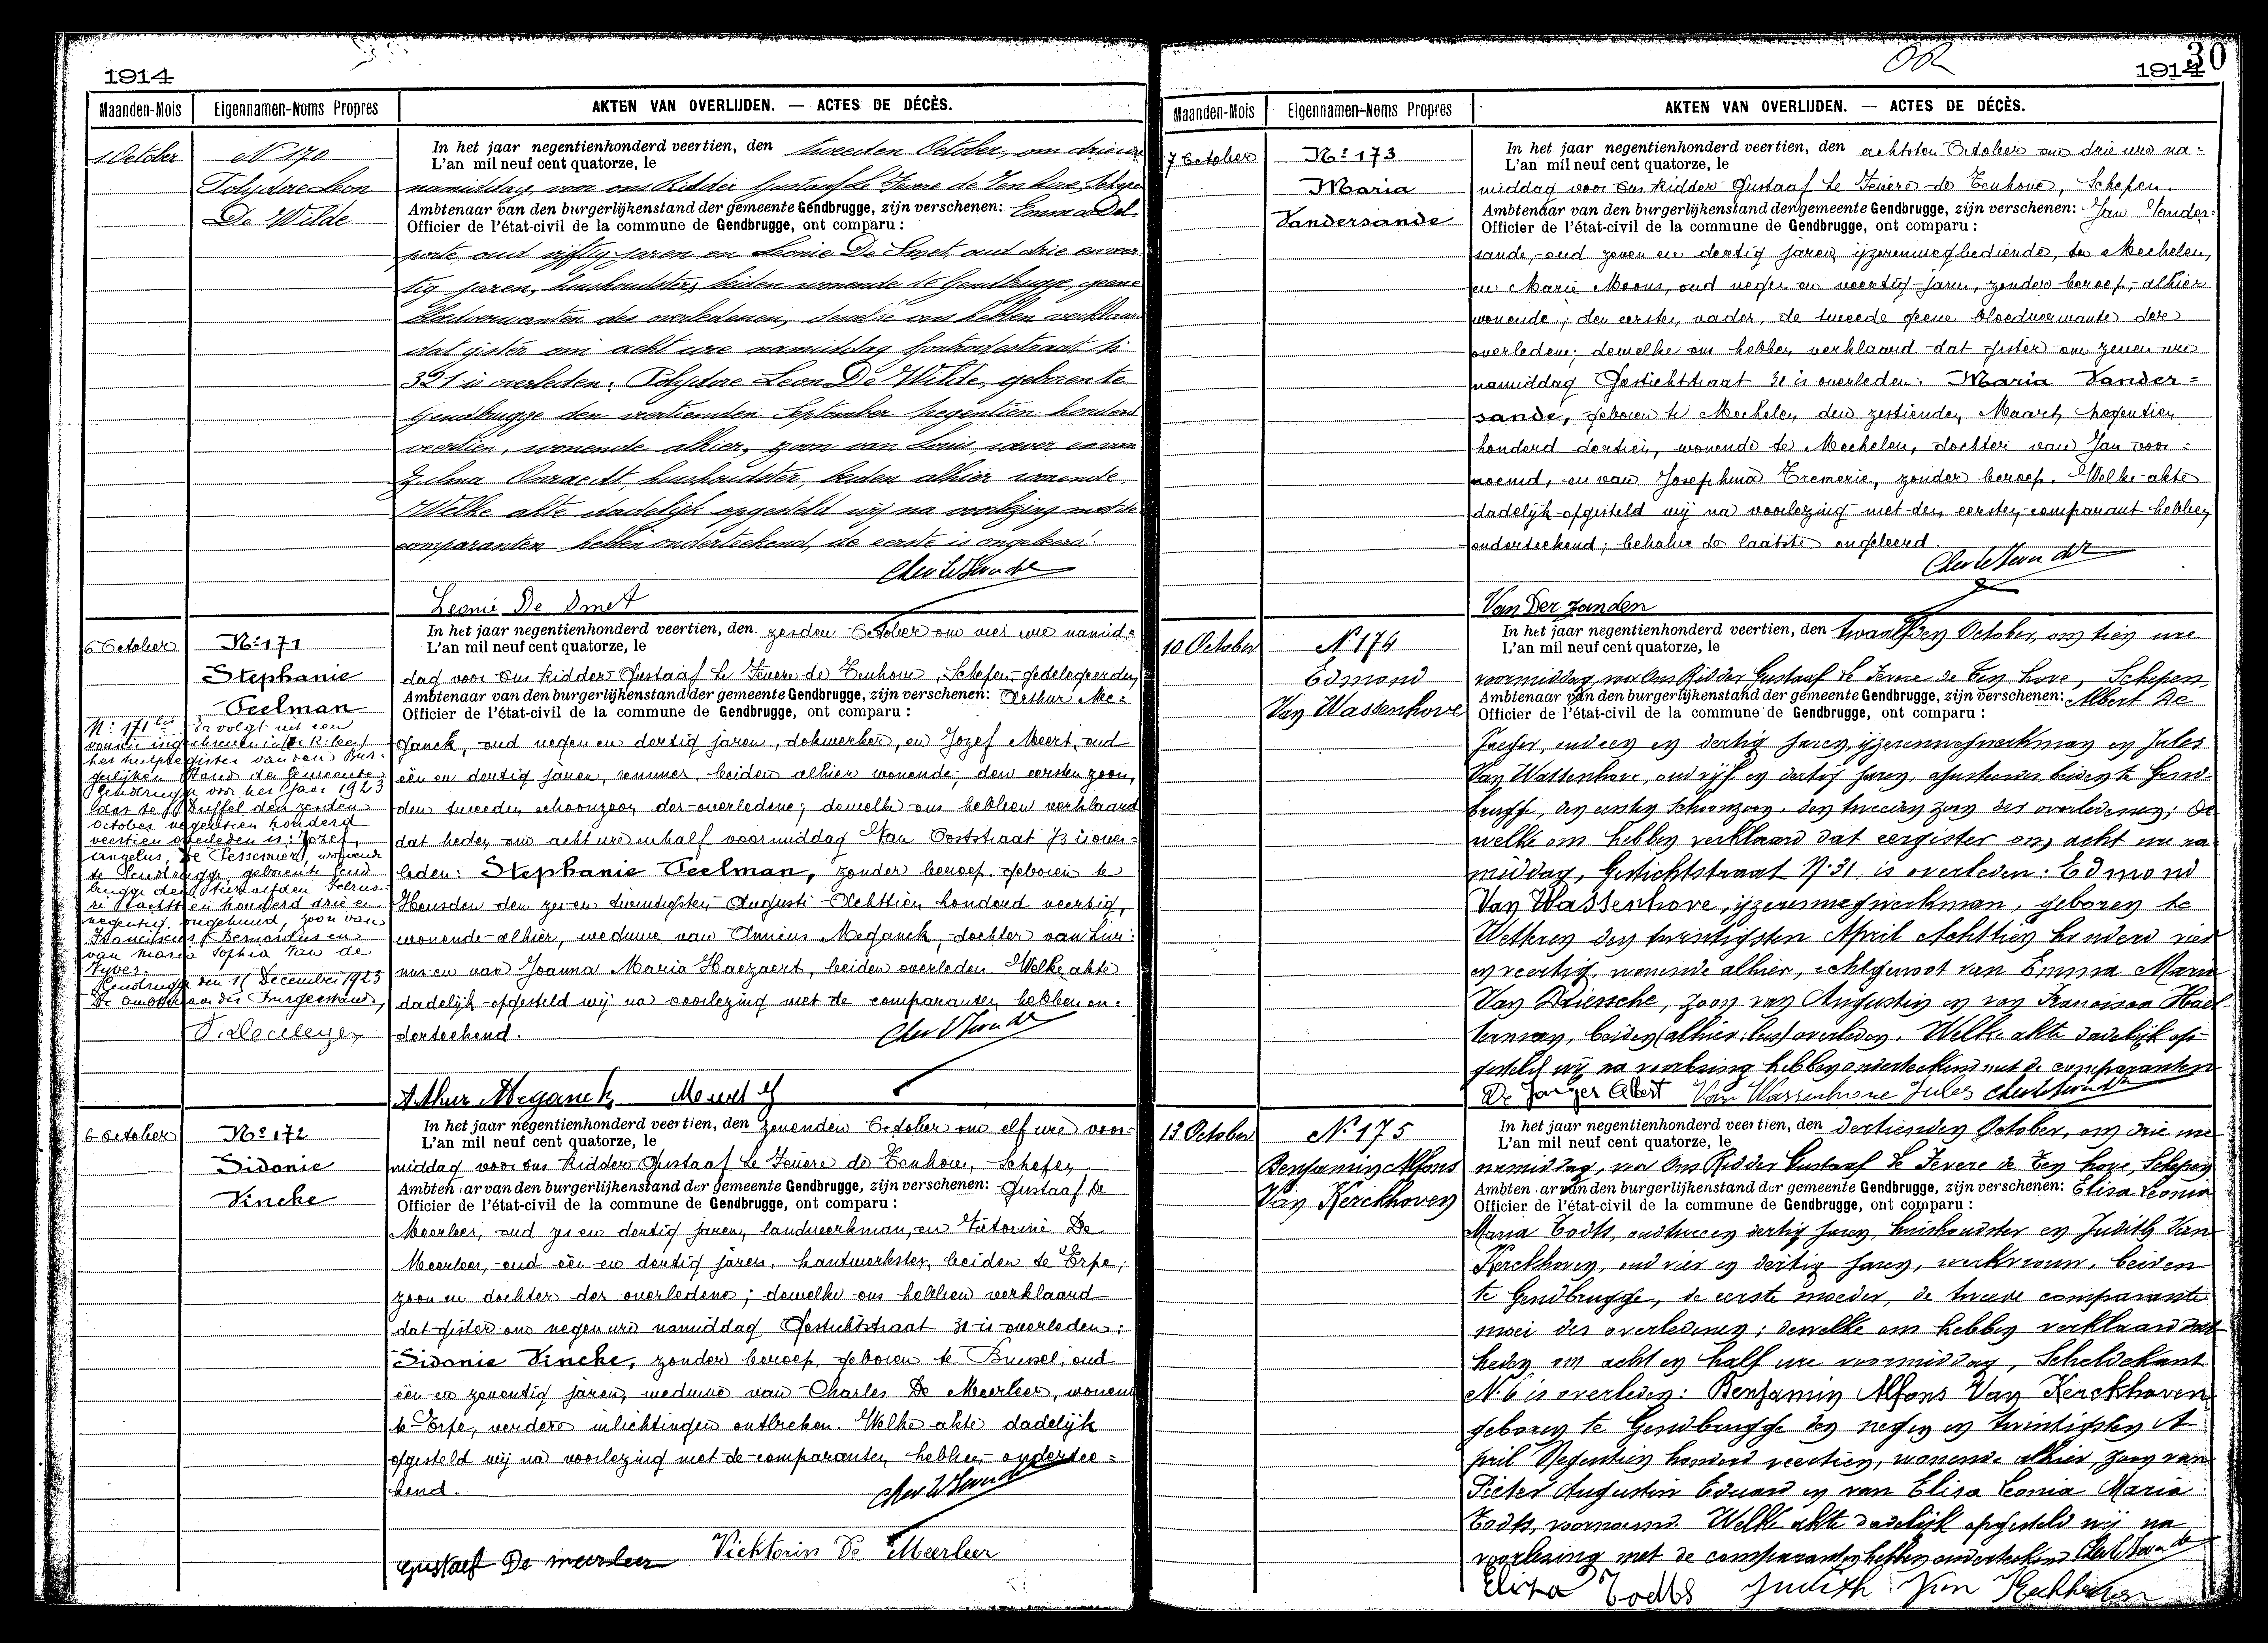 1914
Maanden-Mois Eigennamen-Noms Propres AKTEN VAN OVERLIJDEN. — ACTES DE DÉCÈS.
1 October
No 170
Polydore Leon
De Wilde
In het jaar negentienhonderd veertien, den tweeden October, om drie ure
L'an mil neuf cent quatorze, le
namiddag, voor ons Ridder Gustaaf Le Fevere de Ten Hove, Schepen
Ambtenaar van den burgerlijkenstand der gemeente Gendbrugge, zijn verschenen: Emma Del-
Officier de l'état-civil de la commune de Gendbrugge, ont comparu :
porte, oud vijftig jaren en Leonie De Smet, oud drie en veer-
tig jaren, huishoudsters, beiden wonende te Gendbrugge, geene
bloedverwanten des overledenen, dewelke ons hebben verklaard
dat gister om acht ure namiddag
391 is overleden: Polydore Leon De Wilde, geboren te
Gendbrugge den veertienden September negentien honderd
veertien, wonende alhier, zoon van Louis, en van
Zulma huishoudster, beiden alhier wonende.
Welke akte dadelijk opgesteld wij na voorlezing met de
comparanten hebben onderteekend, de eerste is ongeleerd.
Leonie De Smet
6 October
No 171
Stephanie
Peelman
In het jaar negentienhonderd veertien, den zesden October om vier ure namid-
L'an mil neuf cent quatorze, le
dag voor Ons Ridder Gustaaf Le Fevere de Tenhove, Schepen-gedelegeerden
Ambtenaar van den burgerlijkenstand der gemeente Gendbrugge, zijn verschenen: Arthur Me-
Officier de l'état-civil de la commune de Gendbrugge, ont comparu :
ganck, oud negen en dertig jaren, dokwerker, en Jozef Meert, oud
één en dertig jaren, remmer, beiden alhier wonende; den eersten zoon,
den tweeden schoonzoon der overledene; dewelke ons hebben verklaard
dat heden om acht ure en half voormiddag Van Ooststraat 73 is over-
leden: Stephanie Peelman, zonder beroep, geboren te
Heusden den zes en twintigsten Augusti Achttien honderd veertig,
wonende alhier, weduwe van Meganck, dochter van Livi-
nus en van Joanna Maria Haezaert, beiden overleden. Welke akte
dadelijk opgesteld wij na voorlezing met de comparanten hebben on-
derteekend.
Arthur Meganck Meert J
No 171bis Er volgt uit een
vonnis ingeschreven in
het hulpregister van den Bur-
gerlijken Stand der Gemeente
Gendbrugge voor het jaar 1923
dat te Duffel den zesden
October negentien honderd
veertien overleden is: Jozef,
Angelus, De Pessemier, wonende
te Gendbrugge, geboren te Gend-
brugge den twaalfden Februa-
ri Achttien honderd drie en
negentig, ongehuwd, zoon van
Franciscus Bernardus en
van Maria Sophia Van de
Gendbrugge den 11 December 1923
De Ambtenaar des Burgerstands,
6 October
No 172
Sidonie
Vincke
In het jaar negentienhonderd veertien, den zevenden October om elf ure voor-
L'an mil neuf cent quatorze, le
middag voor ons Ridder Gustaaf Le Fevere de Tenhove, Schepen
Ambtenaar van den burgerlijkenstand der gemeente Gendbrugge, zijn verschenen: Gustaaf De
Officier de l'état-civil de la commune de Gendbrugge, ont comparu :
Meerleer, oud zes en dertig jaren, landwerkman, en Victorine De
Meerleer, oud één en dertig jaren, kantwerkster, beiden te Erpe;
zoon en dochter der overledene; dewelke ons hebben verklaard
dat gister om negen ure namiddag Gestichtstraat 31 is overleden:
Sidonie Vincke, zonder beroep, geboren te Brussel, oud
één en zeventig jaren, weduwe van Charles De Meerleer, wonend
te Erpe, verdere inlichtingen ontbreken. Welke akte dadelijk
opgesteld wij na voorlezing met de comparanten hebben ondertee-
kend.
Gustaef De meerleer Vicktorin De Meerleer
30
1914
Maanden-Mois Eigennamen-Noms Propres AKTEN VAN OVERLIJDEN. — ACTES DE DÉCÈS.
7 October
No 173
Maria
Vandersande
In het jaar negentienhonderd veertien, den achtsten October om drie ure na-
L'an mil neuf cent quatorze, le
middag voor Ons Ridder Gustaaf Le Fevere de Tenhove, Schepen.
Ambtenaar van den burgerlijkenstand der gemeente Gendbrugge, zijn verschenen: Jan Vander-
Officier de l'état-civil de la commune de Gendbrugge, ont comparu :
sande, oud zeven en dertig jaren, ijzerenwegbediende, te Mechelen,
en Marie Moons, oud negen en veertig jaren, zonder beroep, alhier
wonende; den eersten vader, de tweede geene bloedverwante der
overledene; dewelke ons hebben verklaard dat gister om zeven ure
namiddag Gestichtstraat 31 is overleden: Maria Vander-
sande, geboren te Mechelen den zestienden Maart negentien
honderd dertien, wonende te Mechelen, dochter van Jan voor-
noemd, en van Josephina Cremerie, zonder beroep. Welke akte
dadelijk opgesteld wij na voorlezing met den eersten comparant hebben
onderteekend; behalve de laatste ongeleerd.
Van Der zanden
10 October
No 174
Edmond
Van Wassenhove
In het jaar negentienhonderd veertien, den twaalfden October, om tien ure
L'an mil neuf cent quatorze, le
voormiddag, voor Ons Ridder Gustaaf Le Fevere de Ten Hove, Schepen
Ambtenaar van den burgerlijkenstand der gemeente Gendbrugge, zijn verschenen: Albert De
Officier de l'état-civil de la commune de Gendbrugge, ont comparu :
Jaeger, oud een en dertig jaren, ijzerenwegwerkman en Jules
Van Wassenhove, oud vijf en dertig jaren, beiden te Gend-
brugge, den eersten schoonzoon, den tweeden zoon des overledenen; de
welke ons hebben verklaard dat eergister om acht ure na-
middag, Gestichtstraat No 31, is overleden: Edmond
Van Wassenhove, ijzerenwegwerkman, geboren te
Wetteren den twintigsten April Achttien honderd vier
en veertig, wonende alhier, echtgenoot van Emma Maria
Van Driessche, zoon van Augustin en van Francisca
beiden overleden. Welke akte dadelijk op-
gesteld wij na voorlezing hebben onderteekend met de comparanten
De Jaeger Albert Van Wassenhove Jules
13 October
No 175
Benjamin Alfons
Van Kerckhoven
In het jaar negentienhonderd veertien, den dertienden October, om drie ure
L'an mil neuf cent quatorze, le
namiddag, voor Ons Ridder Gustaaf Le Fevere de Ten Hove, Schepen
Ambtenaar van den burgerlijkenstand der gemeente Gendbrugge, zijn verschenen: Elisa Leonia
Officier de l'état-civil de la commune de Gendbrugge, ont comparu :
Maria Todts, oud twee en dertig jaren, huishoudster en Judith Van
Kerckhoven, oud vier en dertig jaren, werkvrouw, beiden
te Gendbrugge, de eerste moeder, de tweede comparante
moei des overledenen; dewelke ons hebben verklaard dat
heden om acht en half ure voormiddag, Scheldekant
No 6 is overleden: Benjamin Alfons Van Kerckhoven
geboren te Gendbrugge den negen en twintigsten A-
pril Negentien honderd veertien, wonende alhier, zoon van
Pieter Augustin Eduard en van Elisa Leonia Maria
Todts, voornoemd. Welke akte dadelijk opgesteld wij na
voorlezing met de comparanten hebben onderteekend
Elisa Todts Judith Van Kerckhoven